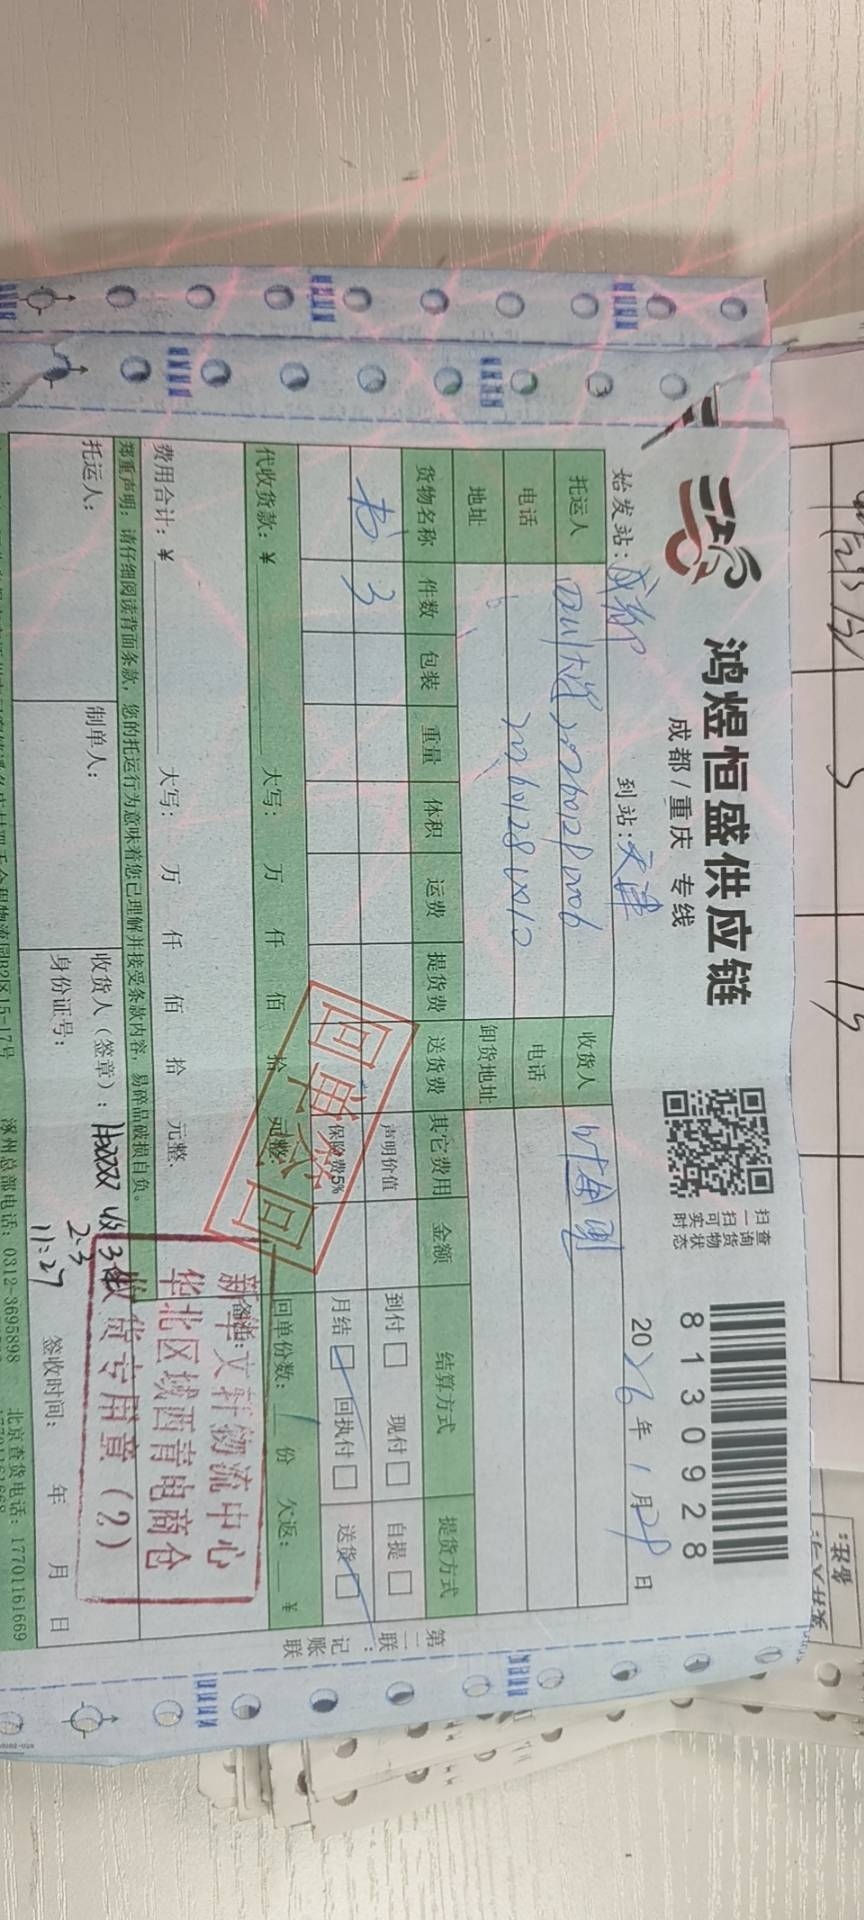 鸿煜恒盛供应链
成都/重庆 专线
扫一扫查询货物可实时状态
8130928
始发站：成都 到站：天津 2026年1月29日
托运人 收货人
电话 20260128 电话
地址 卸货地址
货物名称 件数 包装 重量 体积 运费 提货费 送货费 其它费用 金额 结算方式 提货方式
书 3 声明价值 到付□ 现付□ 自提□
保险费5% 月结□ 回执付□ 送货□
代收货款：¥ 大写： 万 仟 佰 拾 元整 回单份数：1份 欠返： ¥
回单签回
费用合计：¥ 大写： 万 仟 佰 拾 元整 备注：
新华文轩物流中心
华北区域西青电商仓
收货专用章（2）
郑重声明：请仔细阅读背面条款，您的托运行为意味着您已理解并接受条款内容，易碎品破损自负。
托运人： 制单人： 收货人（签章）： 收3件
2.3
11:27
身份证号： 签收时间： 年 月 日
涿州总部电话：0312-3695898 北京查货电话：17701161669
第二联：记账联